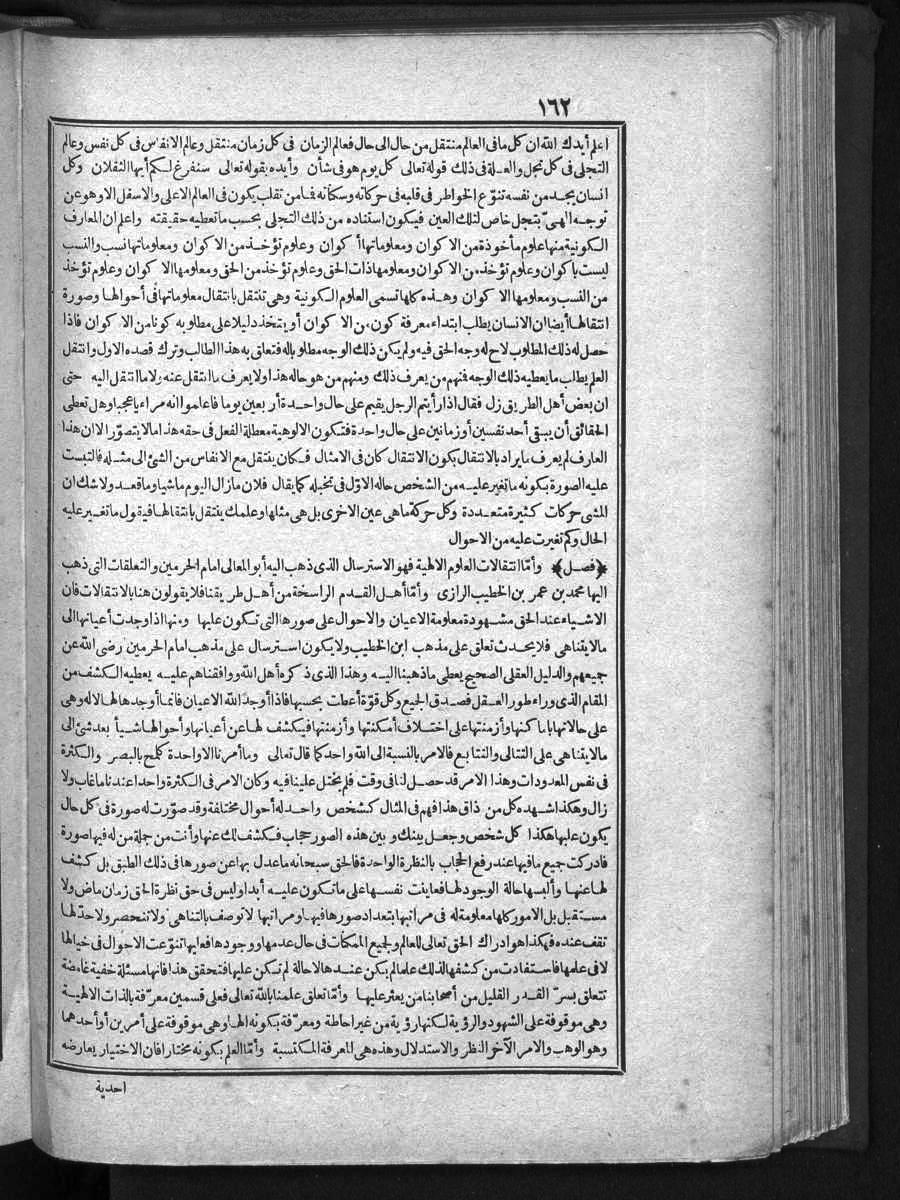 ١٦٢
اعلم أيدك الله ان كل ما فى العالم منتقل من حال الى حال فعالم الزمان فى كل زمان منتقل وعالم الانفاس فى كل نفس وعالم
التجلى فى كل تجل والعلة فى ذلك قوله تعالى كل يوم هو فى شأن وأيده بقوله تعالى سنفرغ لكم أيها الثقلان وكل
انسان يجد من نفسه تنوّع الخواطر فى قلبه فى حركاته وسكناته فما من تقلب يكون فى العالم الاعلى والاسفل الا وهو عن
توجه الهىّ بتجل خاص لتلك العين فيكون استناده من ذلك التجلى بحسب ما تعطيه حقيقته واعلم ان المعارف
الكونية منها علوم مأخوذة من الا كوان ومعلوماتها أ كوان وعلوم تؤخذ من الا كوان ومعلوماتها نسب والنسب
ليست باكوان وعلوم تؤخذ من الا كوان ومعلومها ذات الحق وعلوم تؤخذ من الحق ومعلومها الا كوان وعلوم تؤخذ
من النسب ومعلومها الا كوان وهذه كلها تسمى العلوم الكونية وهى تنتقل بانتقال معلوماتها فى أحوالها وصورة
انتقالها أيضا ان الانسان يطلب ابتداء معرفة كون من الا كوان أو يتخذ دليلا على مطلوبه كونا من الا كوان فاذا
حصل له ذلك المطلوب لاح له وجه الحق فيه ولم يكن ذلك الوجه مطلوبا له فتعلق به هذا الطالب وترك قصده الاول وانتقل
العلم يطلب ما يعطيه ذلك الوجه فمنهم من يعرف ذلك ومنهم من هو حاله هذا ولا يعرف ما انتقل عنه ولا ما انتقل اليه حتى
ان بعض أهل الطريق زل فقال اذا رأيتم الرجل يقيم على حال واحدة أربعين يوما فاعلموا انه مراء يا عجبا وهل تعطى
الحقائق أن يبقى أحد نفسين أو زمانين على حال واحدة فتكون الالوهية معطلة الفعل فى حقه هذا ما لا يتصوّر الا ان هذا
العارف لم يعرف ما يراد بالانتقال بكون الانتقال كان فى الامثال فكان ينتقل مع الانفاس من الشئ الى مثله فالتبست
عليه الصورة بكونه ما تغير عليه من الشخص حاله الاوّل فى تخيله كما يقال فلان ما زال اليوم ماشيا وما قعد ولا شك ان
المشى حركات كثيرة متعددة وكل حركة ما هى عين الاخرى بل هى مثلها وعلمك ينتقل بانتقالها فيقول ما تغير عليه
الحال وكم تغيرت عليه من الاحوال
﴿فصل﴾ وأمّا انتقالات العلوم الالهية فهو الاسترسال الذى ذهب اليه أبو المعالى امام الحرمين والتعلقات التى ذهب
اليها محمد بن عمر بن الخطيب الرازى وأمّا أهل القدم الراسخة من أهل طريقنا فلا يقولون هنا بالانتقالات فان
الاشياء عند الحق مشهودة معلومة الاعيان والاحوال على صورها التى تكون عليها ومنها اذا وجدت أعيانها الى
ما لا يتناهى فلا يحدث تعلق على مذهب ابن الخطيب ولا يكون استرسال على مذهب امام الحرمين رضى الله عن
جميعهم والدليل العقلى الصحيح يعطى ما ذهبنا اليه وهذا الذى ذكره أهل الله ووافقناهم عليه يعطيه الكشف من
المقام الذى وراء طور العقل فصدق الجميع وكل قوّة أعطت بحسبها فاذا أوجد الله الاعيان فانما أوجدها لها لا له وهى
على حالاتها باما كنها وأزمنتها على اختلاف أمكنتها وأزمنتها فيكشف لها عن أعيانها وأحوالها شيأ بعد شئ الى
ما لا يتناهى على التتالى والتتابع فالامر بالنسبة الى الله واحد كما قال تعالى وما أمرنا الا واحدة كلمح بالبصر والكثرة
فى نفس المعدودات وهذا الامر قد حصل لنا فى وقت فلم يختل علينا فيه وكان الامر فى الكثرة واحدا عندنا ما غاب ولا
زال وهكذا شهده كل من ذاق هذا فهم فى المثال كشخص واحد له أحوال مختلفة وقد صوّرت له صورة فى كل حال
يكون عليها هكذا كل شخص وجعل بينك وبين هذه الصور حجاب فكشف لك عنها وأنت من جملة من له فيها صورة
فادركت جميع ما فيها عند رفع الحجاب بالنظرة الواحدة فالحق سبحانه ما عدل بها عن صورها فى ذلك الطبق بل كشف
لها عنها وألبسها حالة الوجود لها فعاينت نفسها على ما تكون عليه أبدا وليس فى حق نظرة الحق زمان ماض ولا
مستقبل بل الامور كلها معلومة له فى مراتبها بتعداد صورها فيها ومراتبها لا توصف بالتناهى ولا تنحصر ولا حدّ لها
تقف عنده فهكذا هو ادراك الحق تعالى للعالم ولجميع الممكنات فى حال عدمها ووجودها فعليها تنوّعت الاحوال فى خيالها
لا فى علمها فاستفادت من كشفها لذلك علما لم يكن عندها لا حالة لم تكن عليها فتحقق هذا فانها مسئلة خفية غامضة
تتعلق بسرّ القدر القليل من أصحابنا من يعثر عليها وأمّا تعلق علمنا بالله تعالى فعلى قسمين معرّفة بالذات الالهية
وهى موقوفة على الشهود والرؤية لكنها رؤية من غير احاطة ومعرّفة بكونه الها وهى موقوفة على أمرين أو أحدهما
وهو الوهب والامر الآخر النظر والاستدلال وهذه هى المعرفة المكتسبة وأمّا العلم بكونه مختارا فان الاختيار يعارضه
احدية